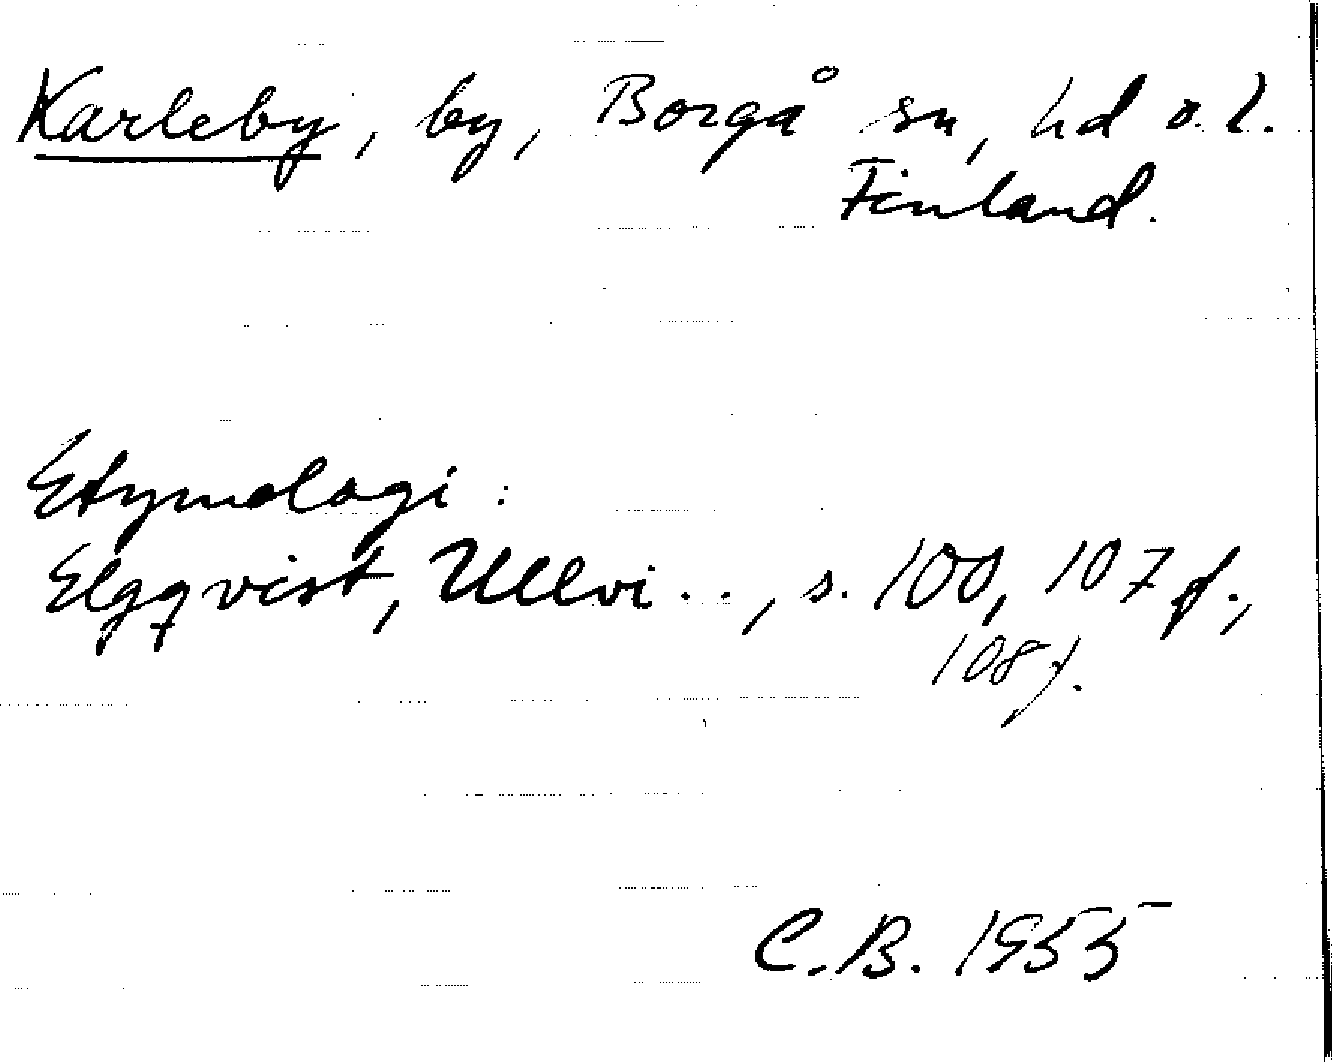 Karleby, by, Borgå sn, hd o. l.
Finland.
Etymologi:
Elgqvist, Ullvi . . , s. 100, 107 f.,
108 f.
C.B. 1955